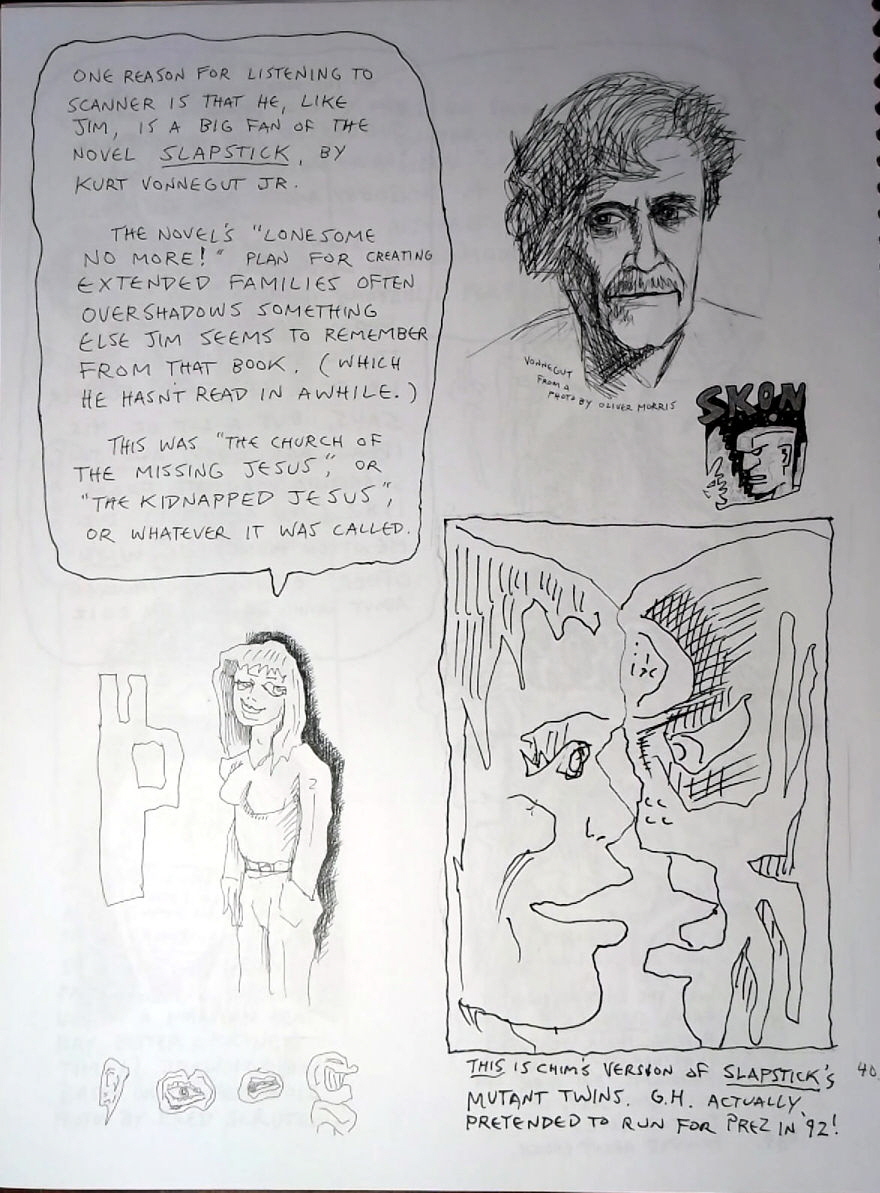 ONE REASON FOR LISTENING TO
SCANNER IS THAT HE, LIKE
JIM, IS A BIG FAN OF THE
NOVEL SLAPSTICK, BY
KURT VONNEGUT JR.
THE NOVEL'S "LONESOME
NO MORE!" PLAN FOR CREATING
EXTENDED FAMILIES OFTEN
OVERSHADOWS SOMETHING
ELSE JIM SEEMS TO REMEMBER
FROM THAT BOOK. (WHICH
HE HASN'T READ IN AWHILE.)
THIS WAS "THE CHURCH OF
THE MISSING JESUS", OR
"THE KIDNAPPED JESUS",
OR WHATEVER IT WAS CALLED.
VONNEGUT
FROM A
PHOTO BY OLIVER MORRIS
SKON
THIS IS CHIM'S VERSION OF SLAPSTICK'S
MUTANT TWINS. G.H. ACTUALLY
PRETENDED TO RUN FOR PREZ IN '92!
40